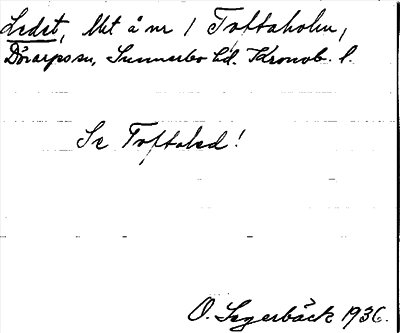 Ledet, lht å nr 1 Toftaholm,
Dörarps sn, Sunnerbo hd. Kronob. l.
Se Toftaled!
O. Segerbäck 1936.